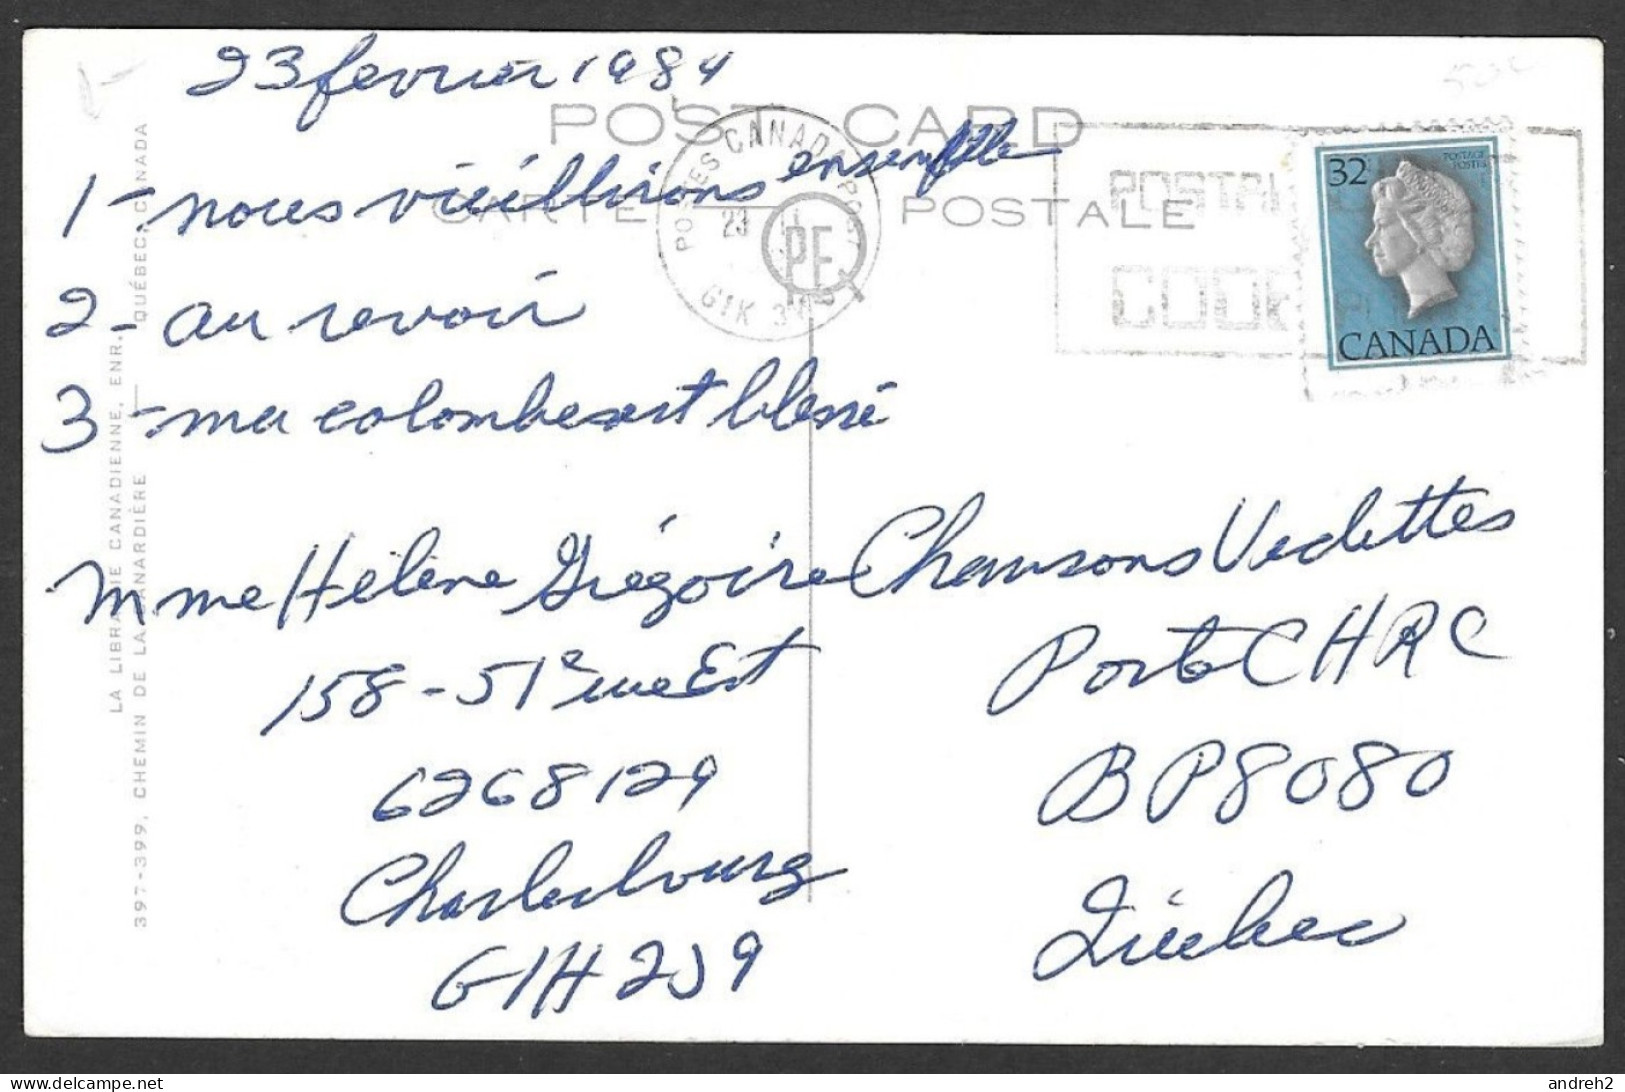 23 fevrier 1984
POST CARD
CARTE POSTALE
1- nous vieillirons ensemble
2- au revoir
3- ma colombe est blessé
POSTES CANADA POST
23 II
PF
G1K 3
POSTAL
CODE
32
POSTAGE
POSTES
CANADA
Mme Hélène Grégoire
158-51ième Est
6268129
Charlesbourg
G1H 2J9
Chansons Vedettes
Poste CHRC
BP 8080
Québec
LA LIBRAIRIE CANADIENNE, ENR.
397-399, CHEMIN DE LA CANARDIÈRE — QUÉBEC, CANADA
andreh2